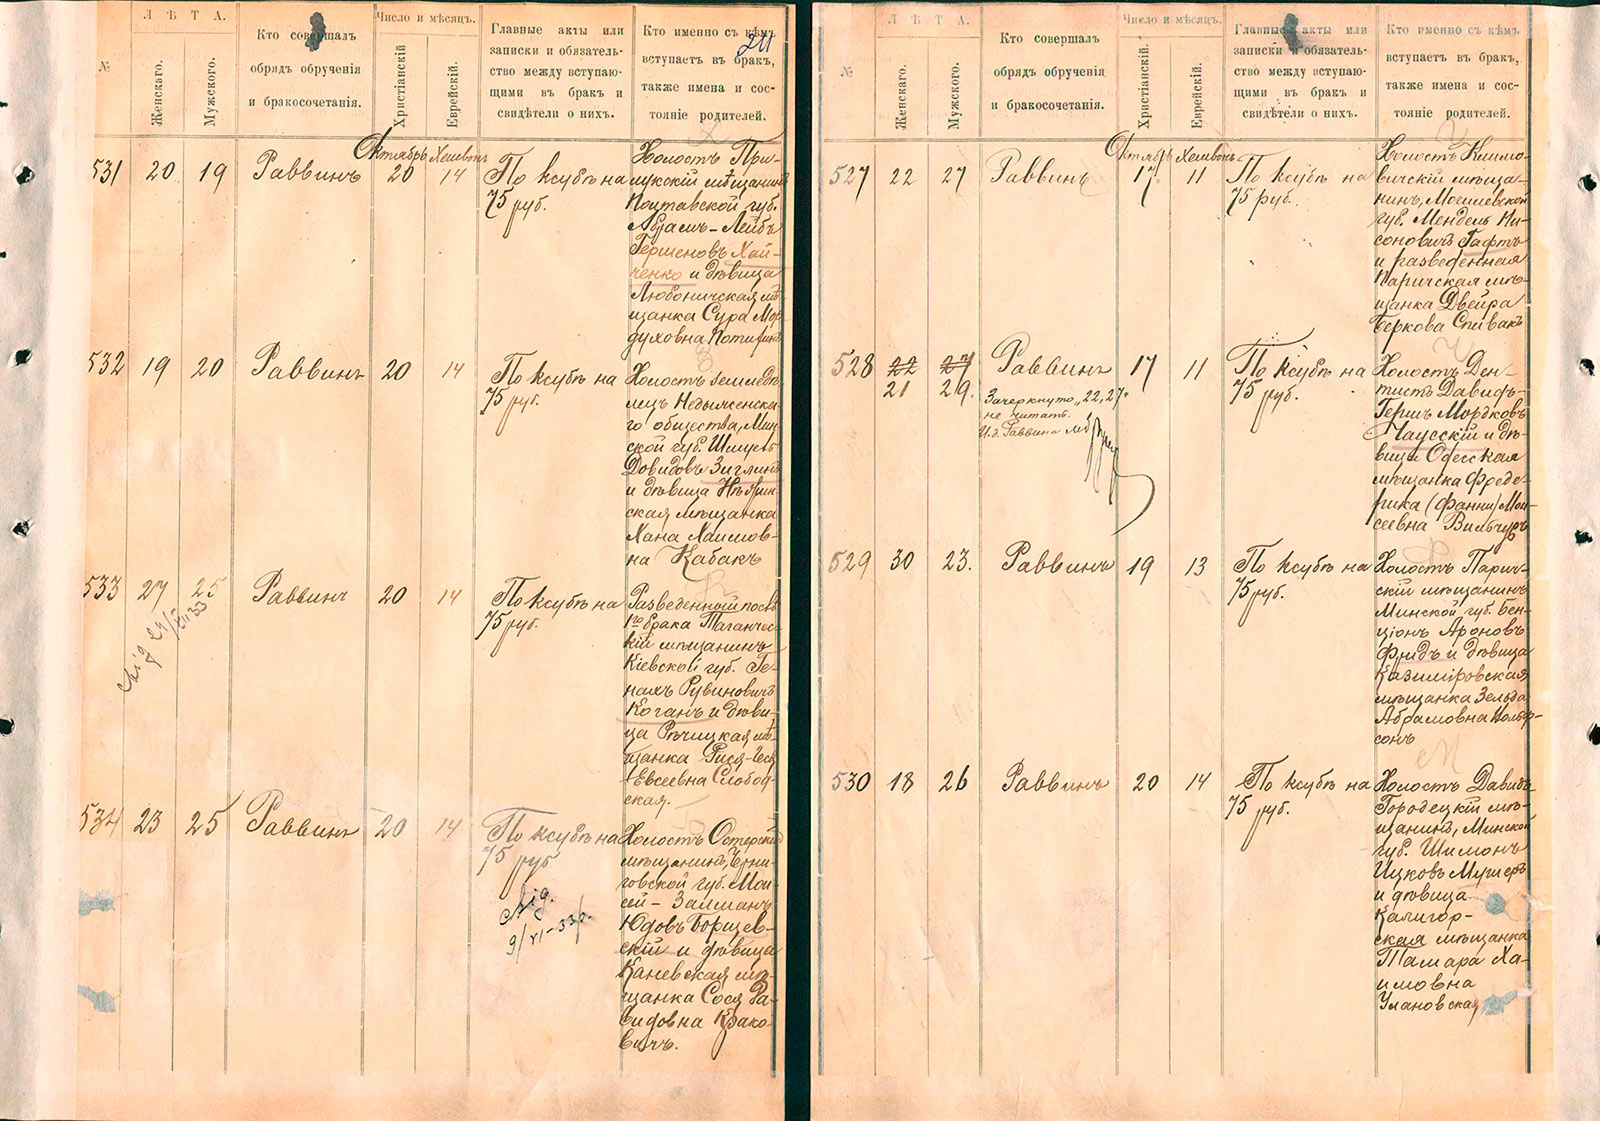 Л Ѣ Т А.
№
Женскаго.
Мужского.
Кто совершалъ
обрядъ обрученія
и бракосочетанія.
Число и мѣсяцъ.
Христіанскій
Еврейскій.
Главные акты или
записки и обязатель-
ство между вступаю-
щими въ бракъ и
свидѣтели о нихъ.
Кто именно съ кѣмъ
вступаетъ въ бракъ,
также имена и сос-
тояніе родителей.
211
531 20 19 Раввинъ
Октябрь 20
Хешвонъ 14
По ксубѣ на
75 руб.
Холостъ При-
лукскій мѣщанинъ
Полтавской губ.
Абрамъ-Лейбъ
Гершеновъ Хай-
ченко и дѣвица
Любоничская мѣ-
щанка Сура Мор-
духовна
532 19 20 Раввинъ 20 14
По ксубѣ на
75 руб.
Холостъ земледѣ-
лецъ
го общества, Мин-
ской губ. Шмуель
Довидовъ Зиглинъ
и дѣвица
ская мѣщанка
Хана Хаимов-
на Кабакъ
533 27 25 Раввинъ 20 14
По ксубѣ на
75 руб.
Разведенный послѣ
1го брака Таганчес-
кій мѣщанинъ
Кіевской губ. Ге-
нахъ Рувиновичъ
Коганъ и дѣви-
ца Рѣчицкая мѣ-
щанка Рися-Геся
Евсеевна Слобод-
ская.
534 23 25 Раввинъ 20 14
По ксубѣ на
75 руб
9/VI-33г.
Холостъ Остерскій
мѣщанинъ, Черни-
говской губ. Мои-
сей-Залманъ
Юдовъ Борщев-
скій и дѣвица
Каневская мѣ-
щанка Сося Да-
видовна Крако-
вичъ.
Л Ѣ Т А.
№
Женскаго.
Мужского.
Кто совершалъ
обрядъ обрученія
и бракосочетанія.
Число и мѣсяцъ.
Христіанскій
Еврейскій.
Главные акты или
записки и обязатель-
ство между вступаю-
щими въ бракъ и
свидѣтели о нихъ.
Кто именно съ кѣмъ
вступаетъ въ бракъ,
также имена и сос-
тояніе родителей.
527 22 27 Раввинъ
Октябрь 17
Хешвонъ 11
По ксубѣ на
75 руб.
Холостъ Климо-
вичскій мѣща-
нинъ, Могилевской
губ. Мендель Ни-
соновичъ Гафтъ
и разведенная
Паричская мѣ-
щанка Двейра
Беркова Спивакъ
528 22 27 Раввинъ 17 11
21 29.
Зачеркнуто „22, 27"
не читать.
И.д. Раввина
По ксубѣ на
75 руб.
Холостъ Ден-
тистъ Давидъ-
Гершъ Мордковъ
Чаусскій и дѣ-
вица Одесская
мѣщанка Фреде-
рика (Фанни) Мои-
сеевна Вильчуръ
529 30 23. Раввинъ 19 13
По ксубѣ на
75 руб.
Холостъ Парич-
скій мѣщанинъ
Минской губ. Бен-
ціонъ Ароновъ
Фридъ и дѣвица
Казимировская
мѣщанка Зельда
Абрамовна
сонъ
530 18 26 Раввинъ 20 14
По ксубѣ на
75 руб.
Холостъ Давидъ-
Городецкій мѣ-
щанинъ, Минской
губ. Шимонъ
Ицковъ Мушеръ
и дѣвица
Калигор-
ская мѣщанка
Тамара Ха-
имовна
Улановская